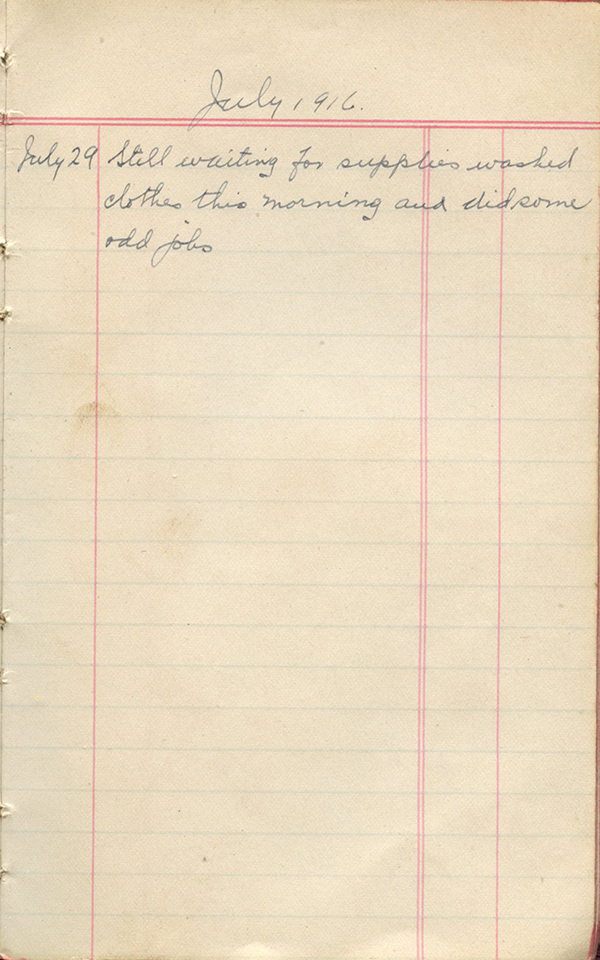 July 1916.
July 29 Still waiting for supplies washed
clothes this morning and did some
odd jobs